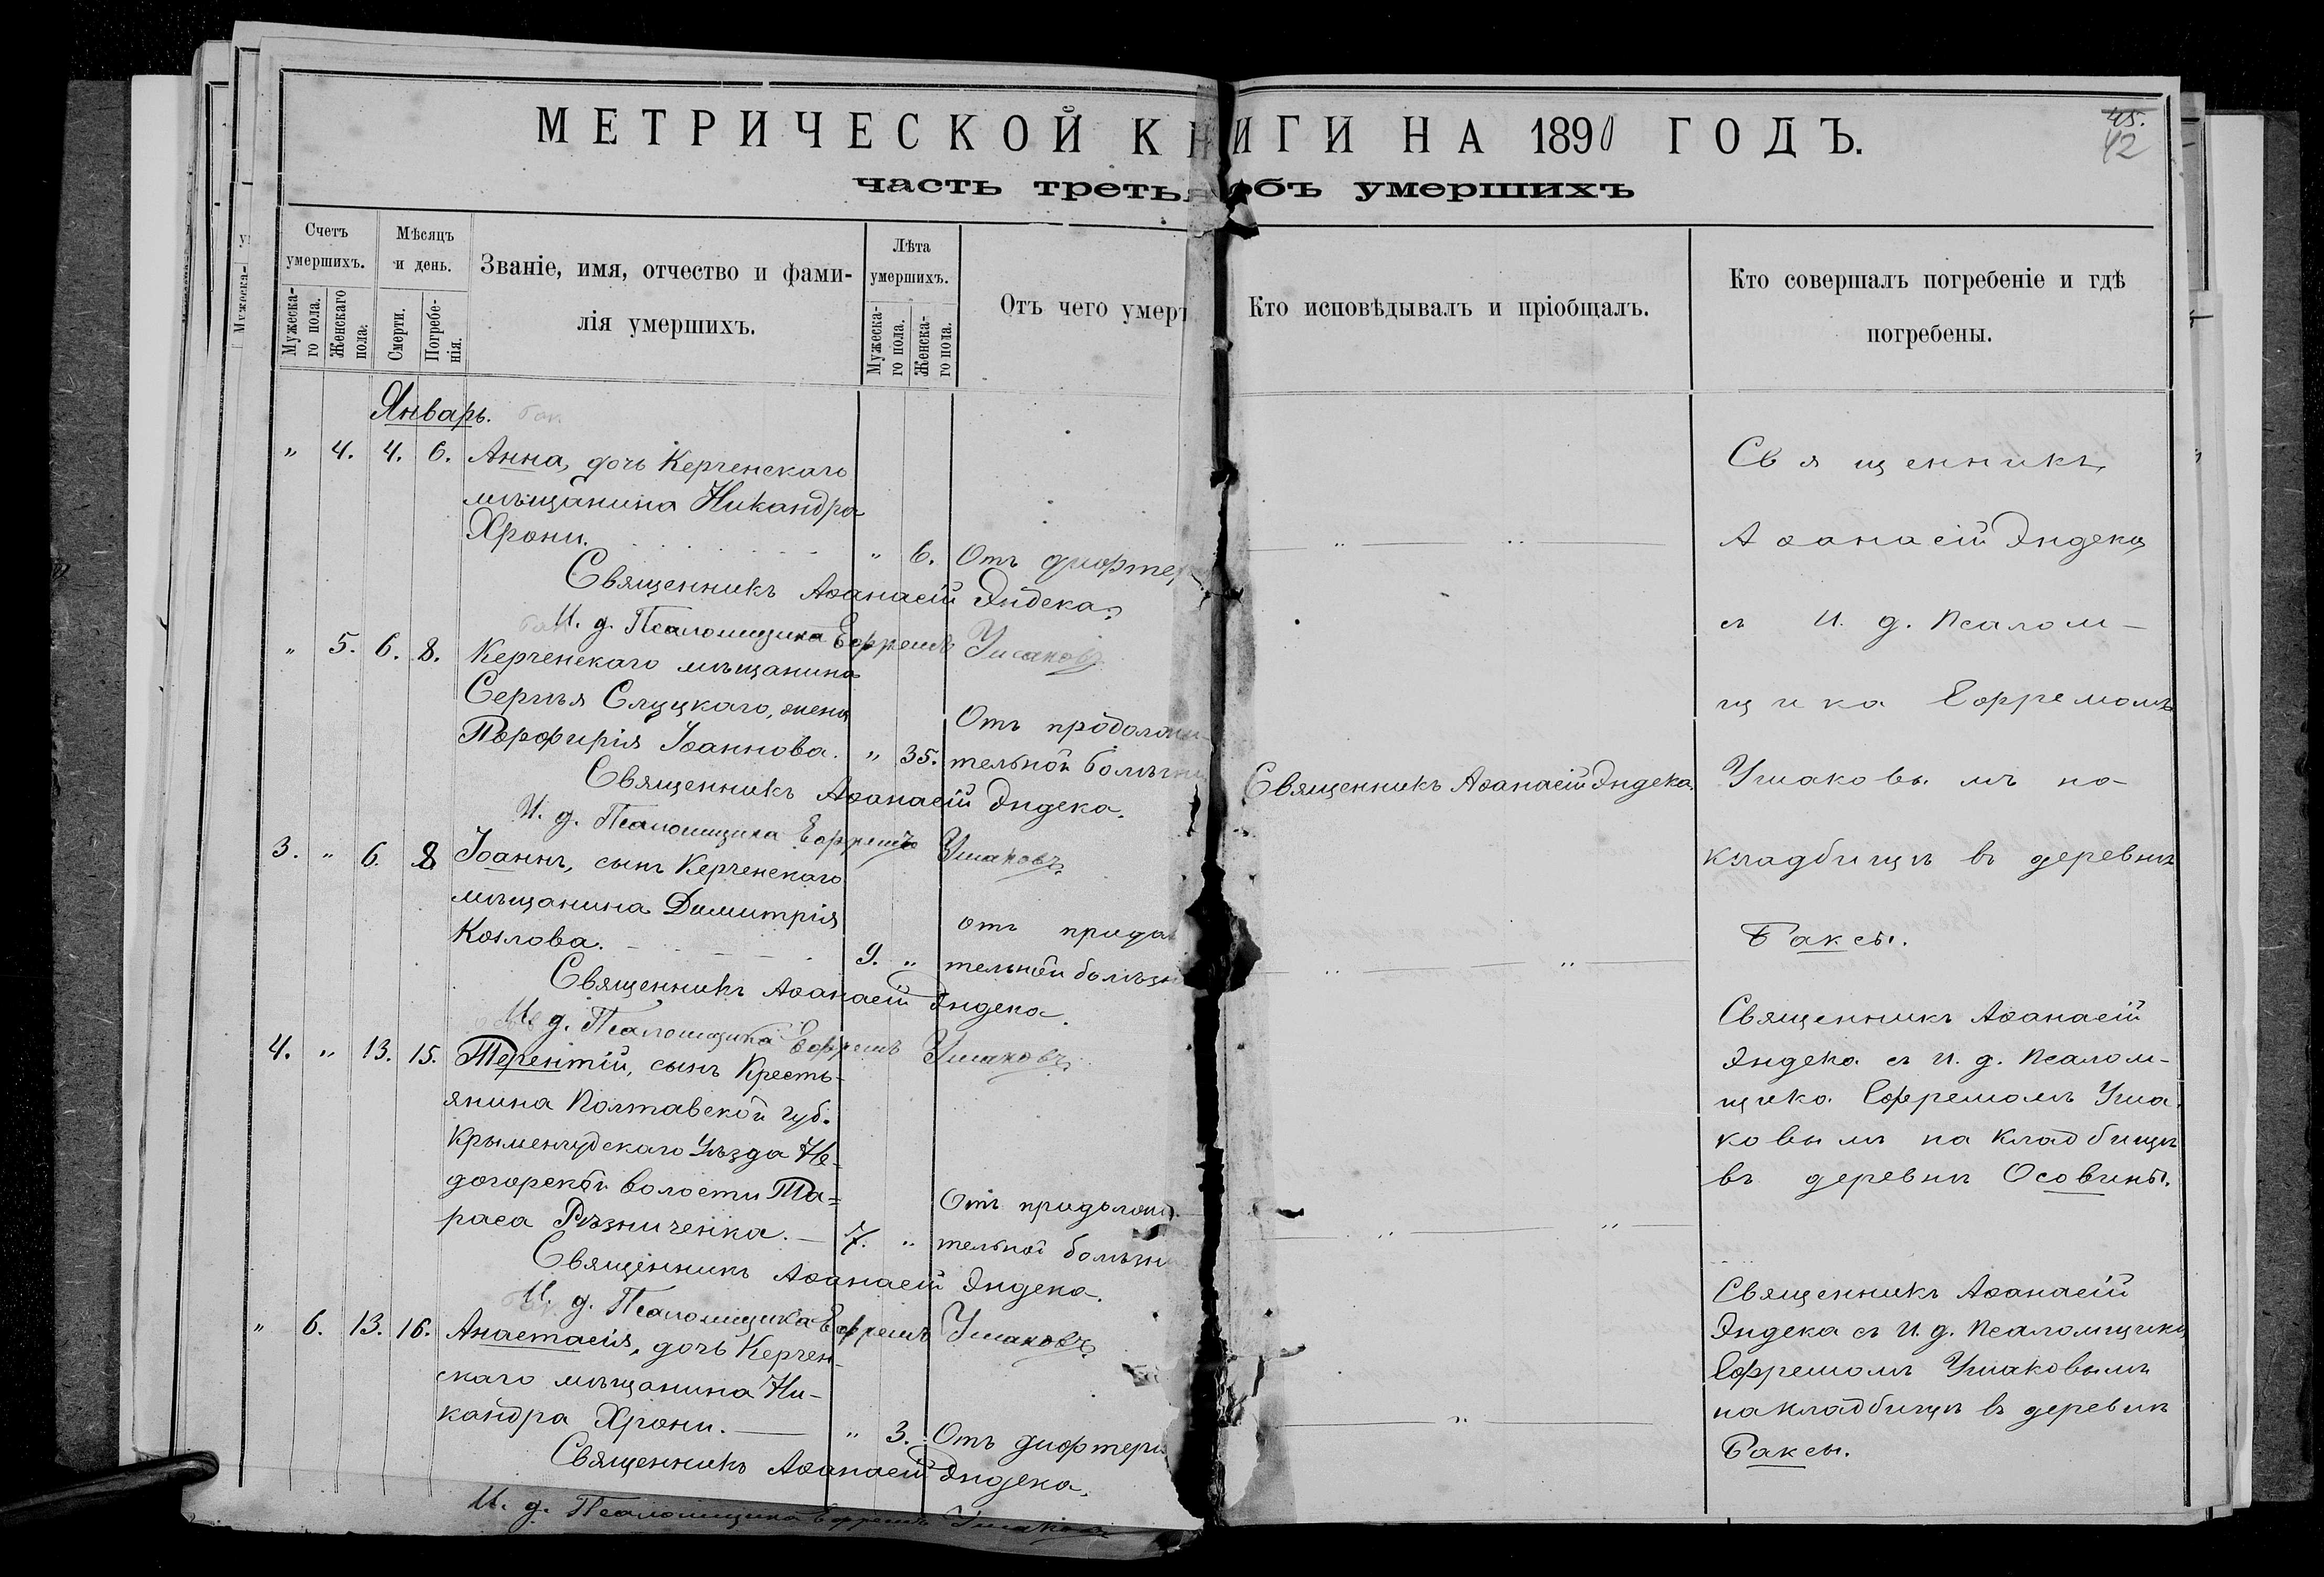 МЕТРИЧЕСКОЙ КНИГИ НА 1890 ГОДЪ.
45.
42
часть третья объ умершихъ
Счетъ умершихъ.
Мужеска-го пола.
Женскаго пола.
Мѣсяцъ и день.
Смерти.
Погребе-нія.
Званіе, имя, отчество и фами-
лія умершихъ.
Лѣта умершихъ.
Мужеска-го пола.
Женска-го пола.
Отъ чего умер
Кто исповѣдывалъ и пріобщалъ.
Кто совершалъ погребеніе и гдѣ
погребены.
Январь.
" 4. 4. 6. Анна, дочь Керченскаго
мѣщанина Никандра
Хрони. " 6. Отъ дифтер
Священникъ Аѳанасій Эндека
И. д. Псаломщика Ефремъ Ушаковъ
" 5. 6. 8. Керченскаго мѣщанина
Сергѣя Слуцкаго, жена
Порфирія Іоаннова. " 35. Отъ продолжи-
тельной болѣзни
Священникъ Аѳанасій Эндека.
И. д. Псаломщика Ефремъ Ушаковъ
3. " 6. 8 Іоаннъ, сынъ Керченскаго
мѣщанина Димитрія
Козлова. 9. " отъ придол
тельной болѣзн
Священникъ Аѳанасій Эндека.
И. д. Псаломщика Ефремъ Ушаковъ
4. " 13. 15. Терентій, сынъ Кресть-
янина Полтавской губ.
Крыменчудскаго Уѣзда Не-
догорской волости Та=
раса Рѣзниченка. — 7. " Отъ придолжи
тельной болѣзн
Священникъ Аѳанасій Эндека.
И. д. Псаломщика Ефремъ Ушаковъ
" 6. 13. 16. Анастасія, дочь Керчен-
скаго мѣщанина Ни-
кандра Хрони. — " 3. Отъ дифтери
Священникъ Аѳанасій Эндека.
И. д. Псаломщика Ефремъ Ушаковъ
Священникъ Аѳанасій Эндека
Священникъ
Аѳанасій Эндека
съ И. д. Псалом-
щика Ефремомъ
Ушаковымъ на
кладбищѣ въ деревнѣ
Баксы.
Священникъ Аѳанасій
Эндека съ И. д. Псалом-
щика Ефремомъ Уша-
ковымъ на кладбищѣ
въ деревнѣ Осовины.
Священникъ Аѳанасій
Эндека съ И. д. Псаломщика
Ефремомъ Ушаковымъ
на кладбищѣ въ деревнѣ
Баксы.